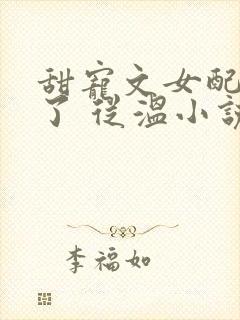 甜寵文女配
了 從溫小說
李福如